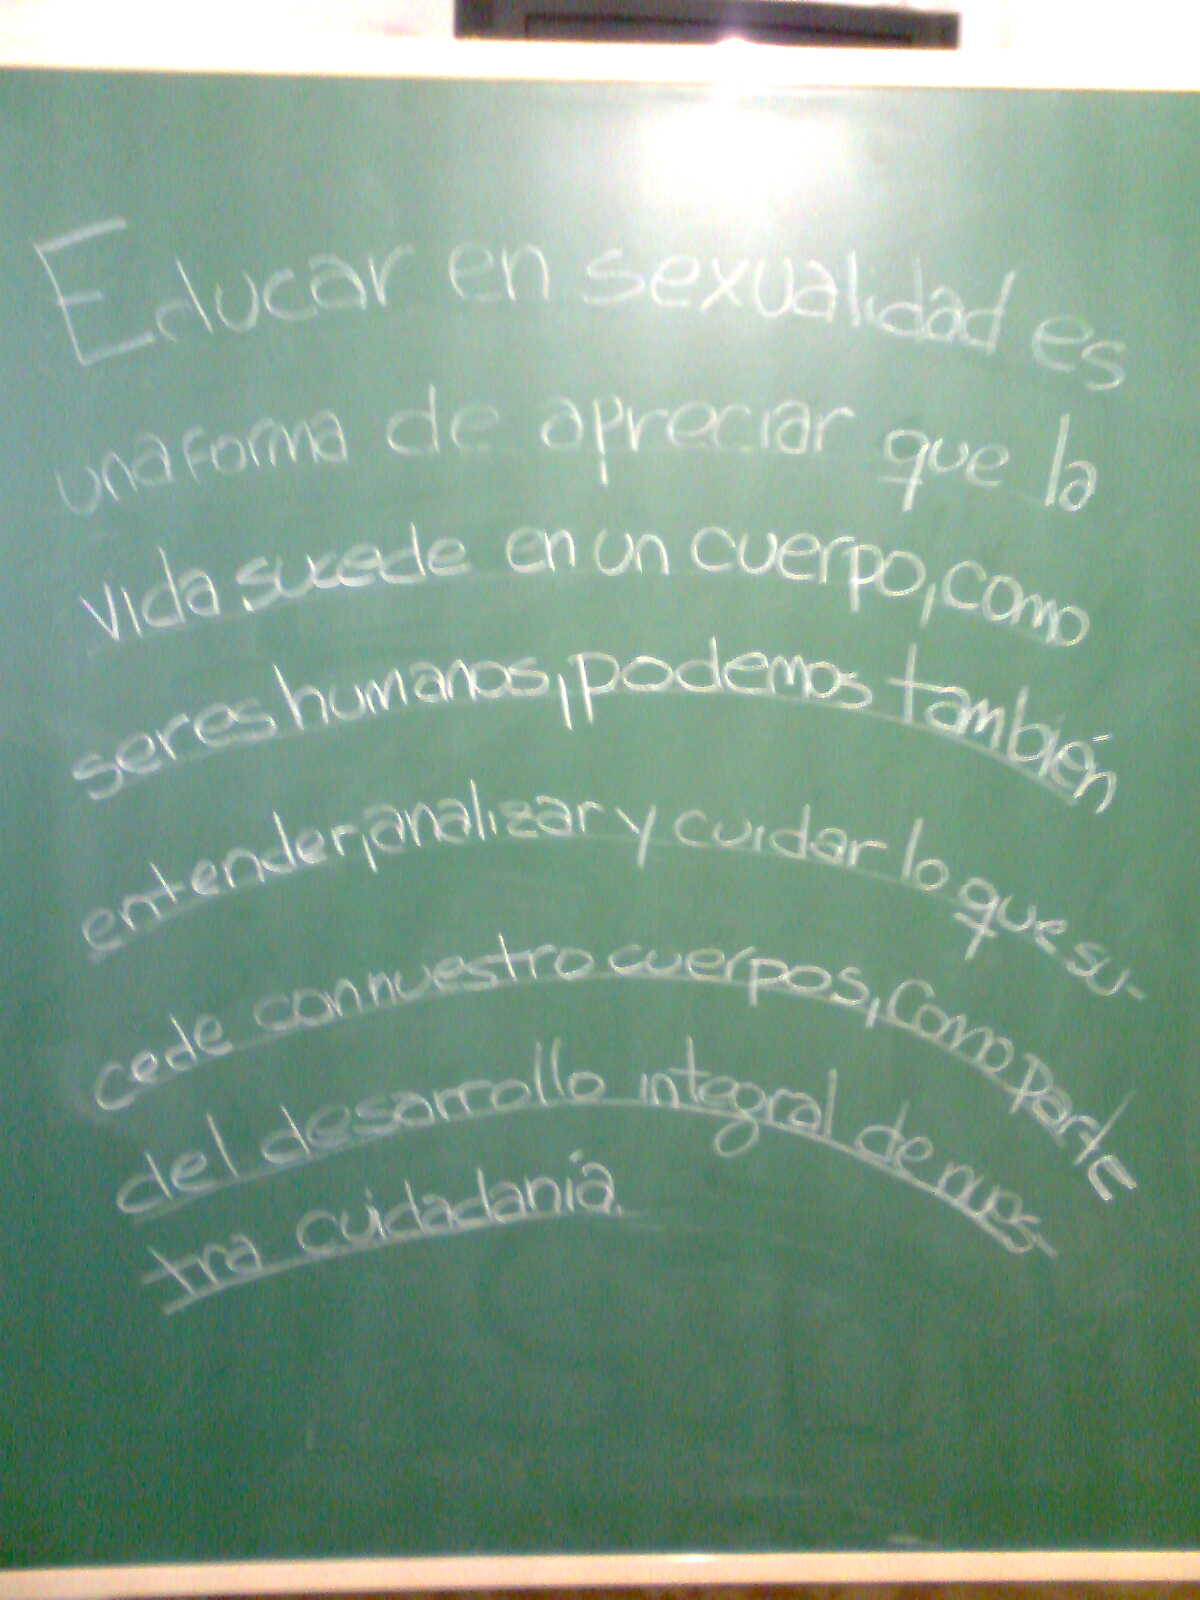 Educar en sexualidad es
una forma de apreciar que la
vida sucede en un cuerpo, como
seres humanos, podemos también
entender, analizar y cuidar lo que su-
cede con nuestro cuerpos, como parte
del desarrollo integral de nues-
tra cuidadanía.